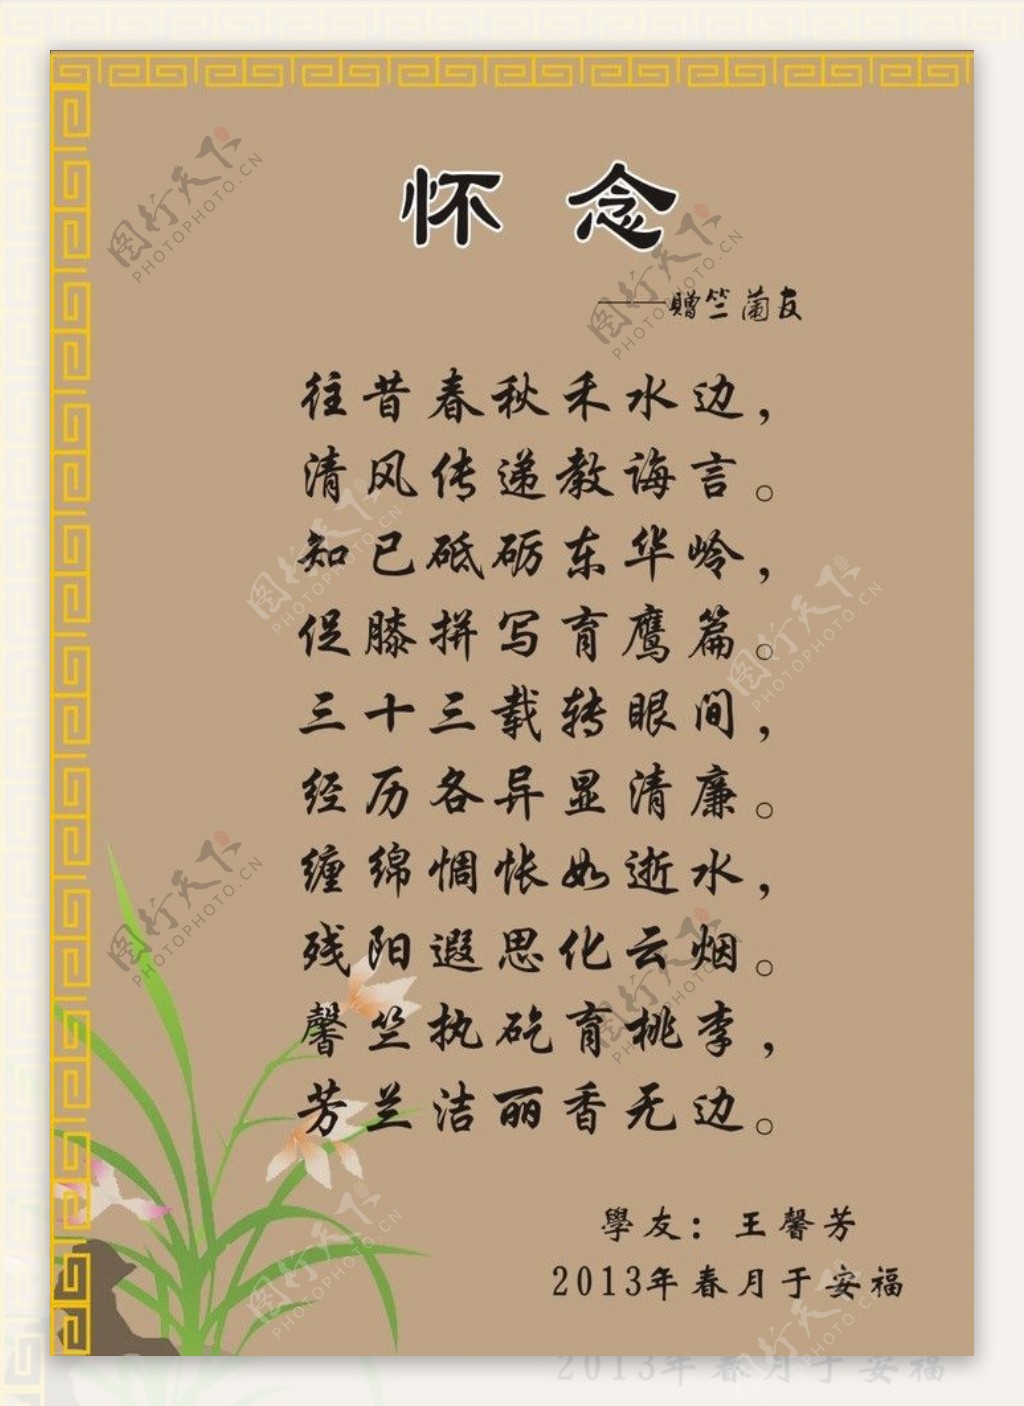 怀念
——赠竺蘭友
往昔春秋禾水边，
清风传递教诲言。
知已砥砺东华岭，
促膝拼写育鹰篇。
三十三载转眼间，
经历各异显清廉。
缠绵惆怅如逝水，
残阳遐思化云烟。
馨竺执矻育桃李，
芳兰洁丽香无边。
學友：王馨芳
2013年春月于安福
图行天下
PHOTOPHOTO.CN